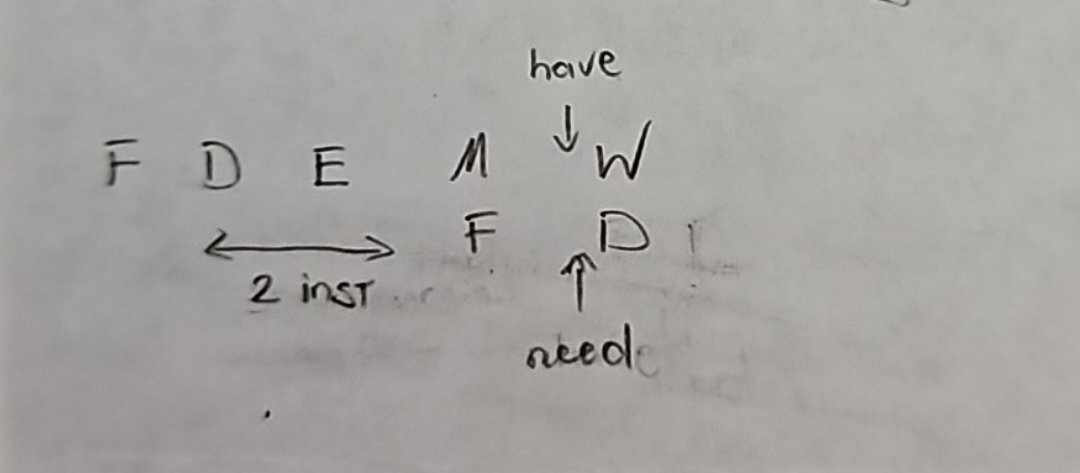 have
F D E M W
F D
2 inst
need